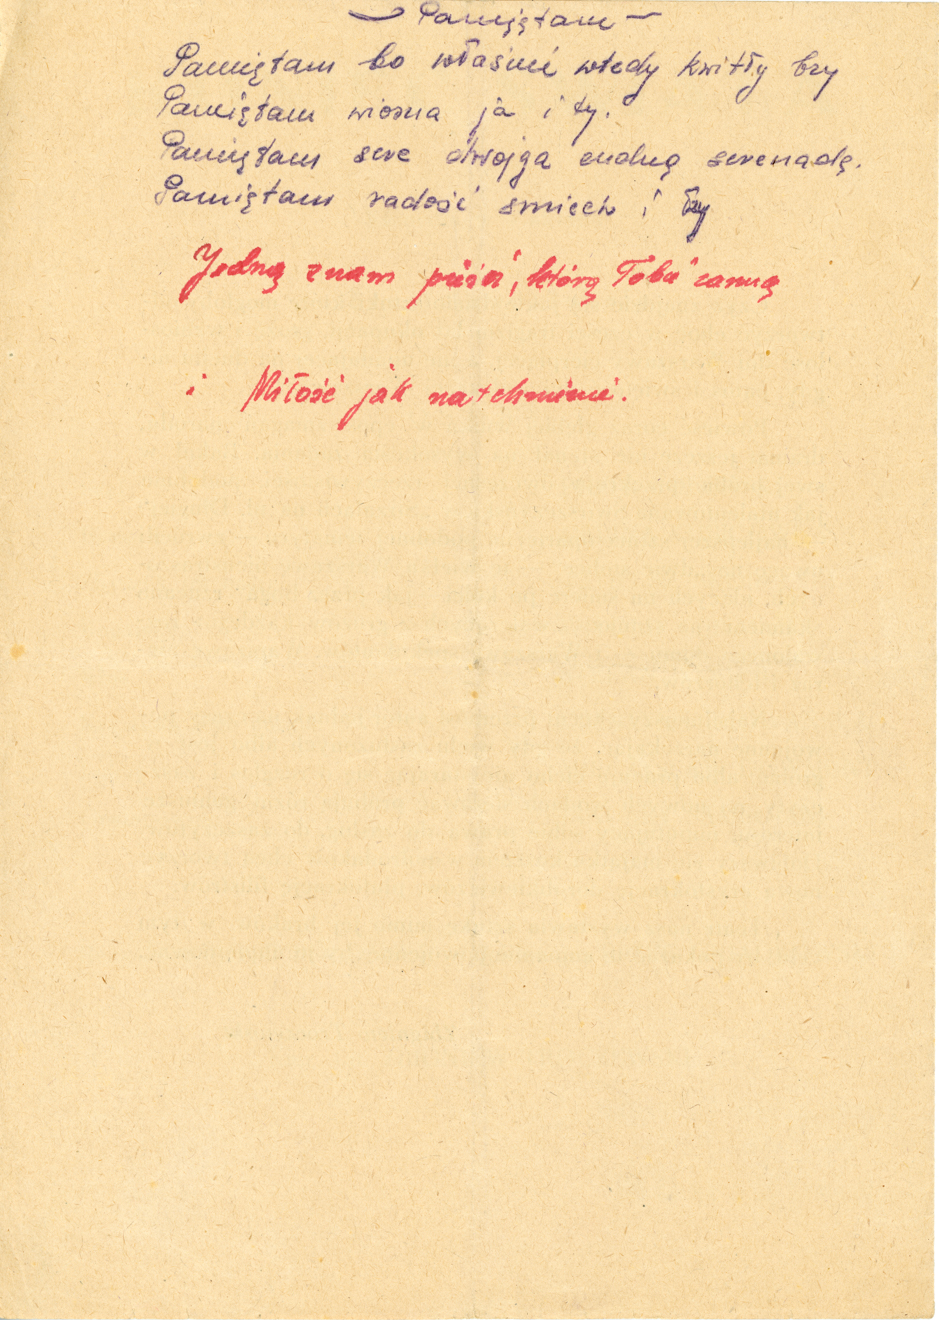 — Pamiętam —
Pamiętam bo właśnie wtedy kwitły bzy
Pamiętam wiosna ja i ty.
Pamiętam serc dwojga cudną serenadę.
Pamiętam radość śmiech i łzy
Jedną znam pieśń, którą Tobie zanucę
i Miłość jak natchnienie.